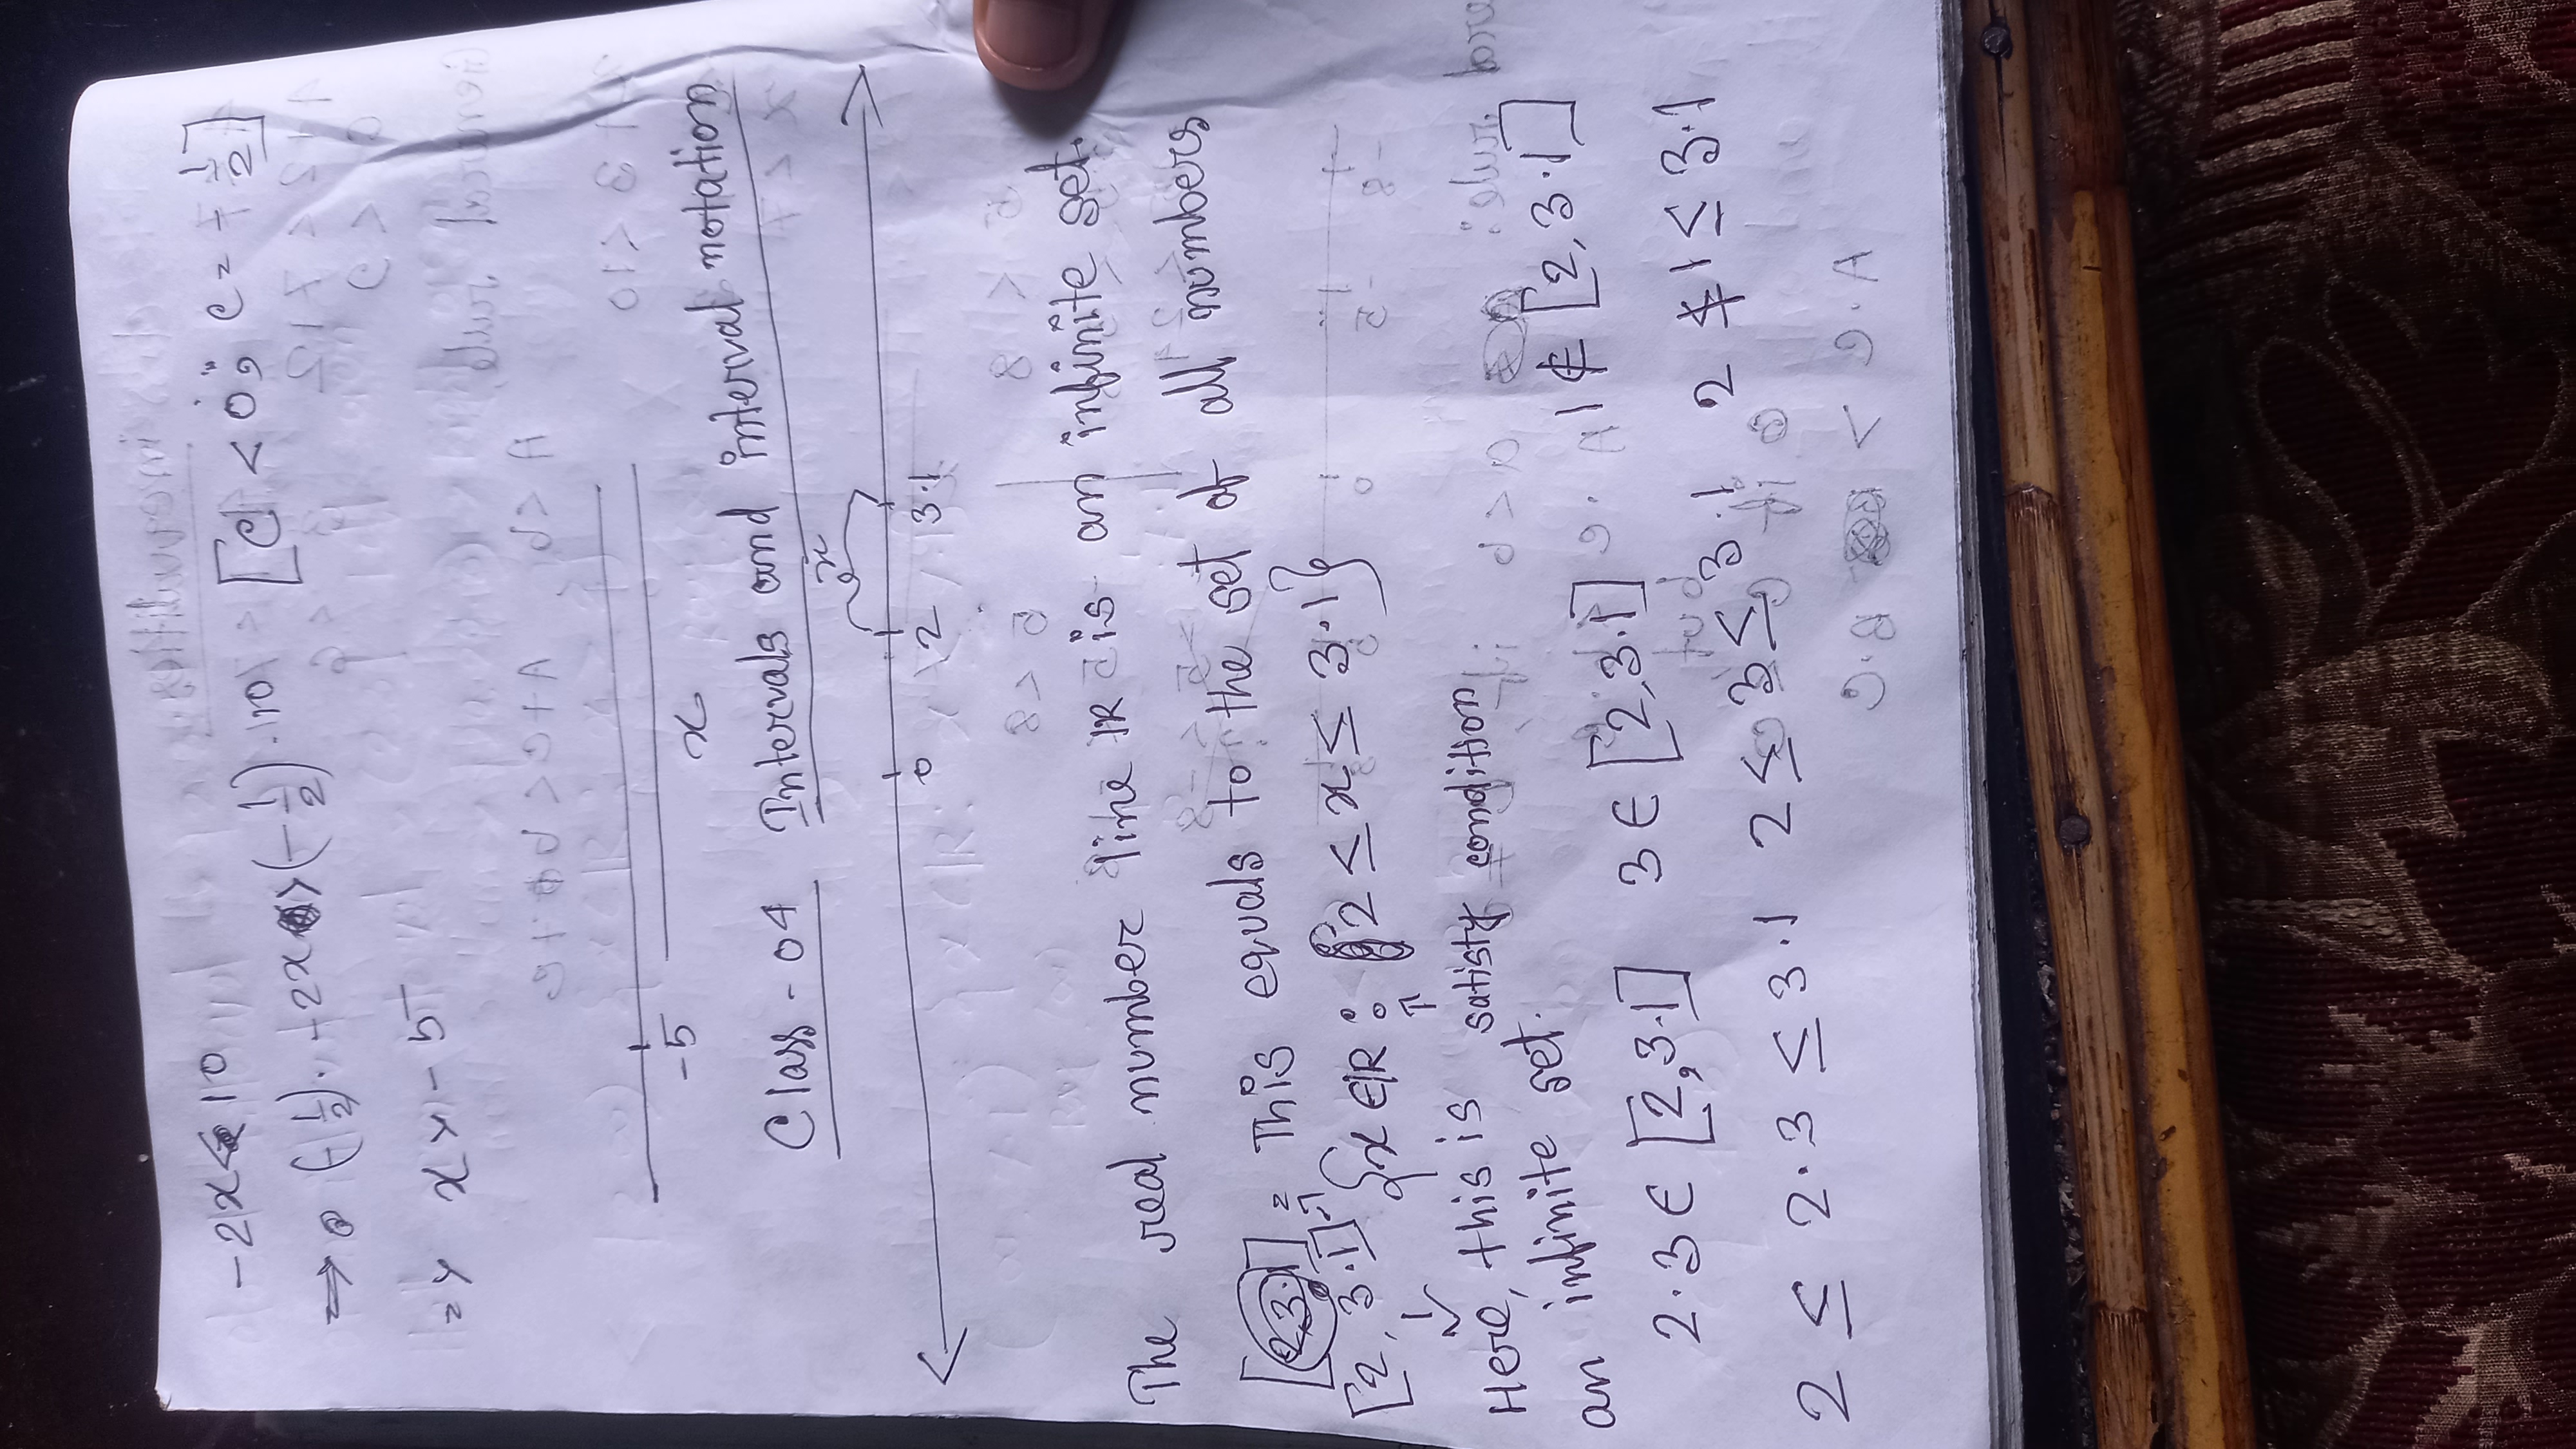 -2x < 10
⇒ (-1/2) · -2x > (-1/2) · 10 [c < 0; c = -1/2]
=> x > -5
-5
x
Class - 04 Intervals and interval notation
x
0 2 3.1
The real number line ℝ is an infinite set.
[2, 3.1] = This equals to the set of all numbers
[2, 3.1] → {x ∈ ℝ : 2 ≤ x ≤ 3.1}
Here, this is satisfy condition
an infinite set.
2.3 ∈ [2, 3.1] 3 ∈ [2, 3.1] 1 ∉ [2, 3.1]
2 ≤ 2.3 ≤ 3.1 2 ≤ 3 ≤ 3.1 2 ≰ 1 ≤ 3.1